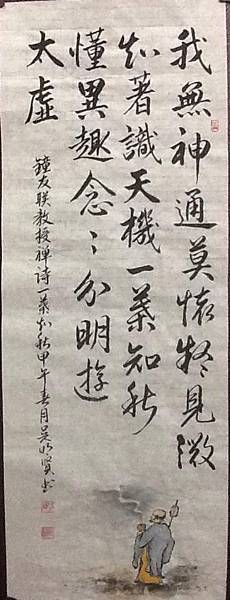 我無神通莫懷疑見微
知著識天機一葉知秋
懂異趣念〻分明遊
太虛
鐘友联教授禅诗一葉知秋甲午春月吴明賢书